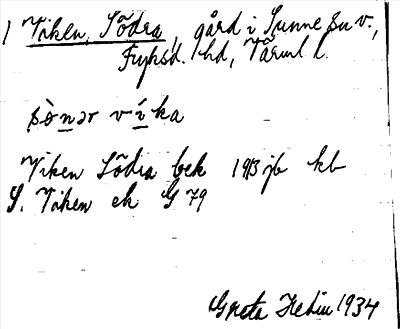 1 Viken, Södra, gård i Sunne su v.,
Fryksd. hd, Värml l.
sò̀nər víka
Viken Södra bek 1913 jb kb
S. Viken ek G 79
Greta Hedin 1934